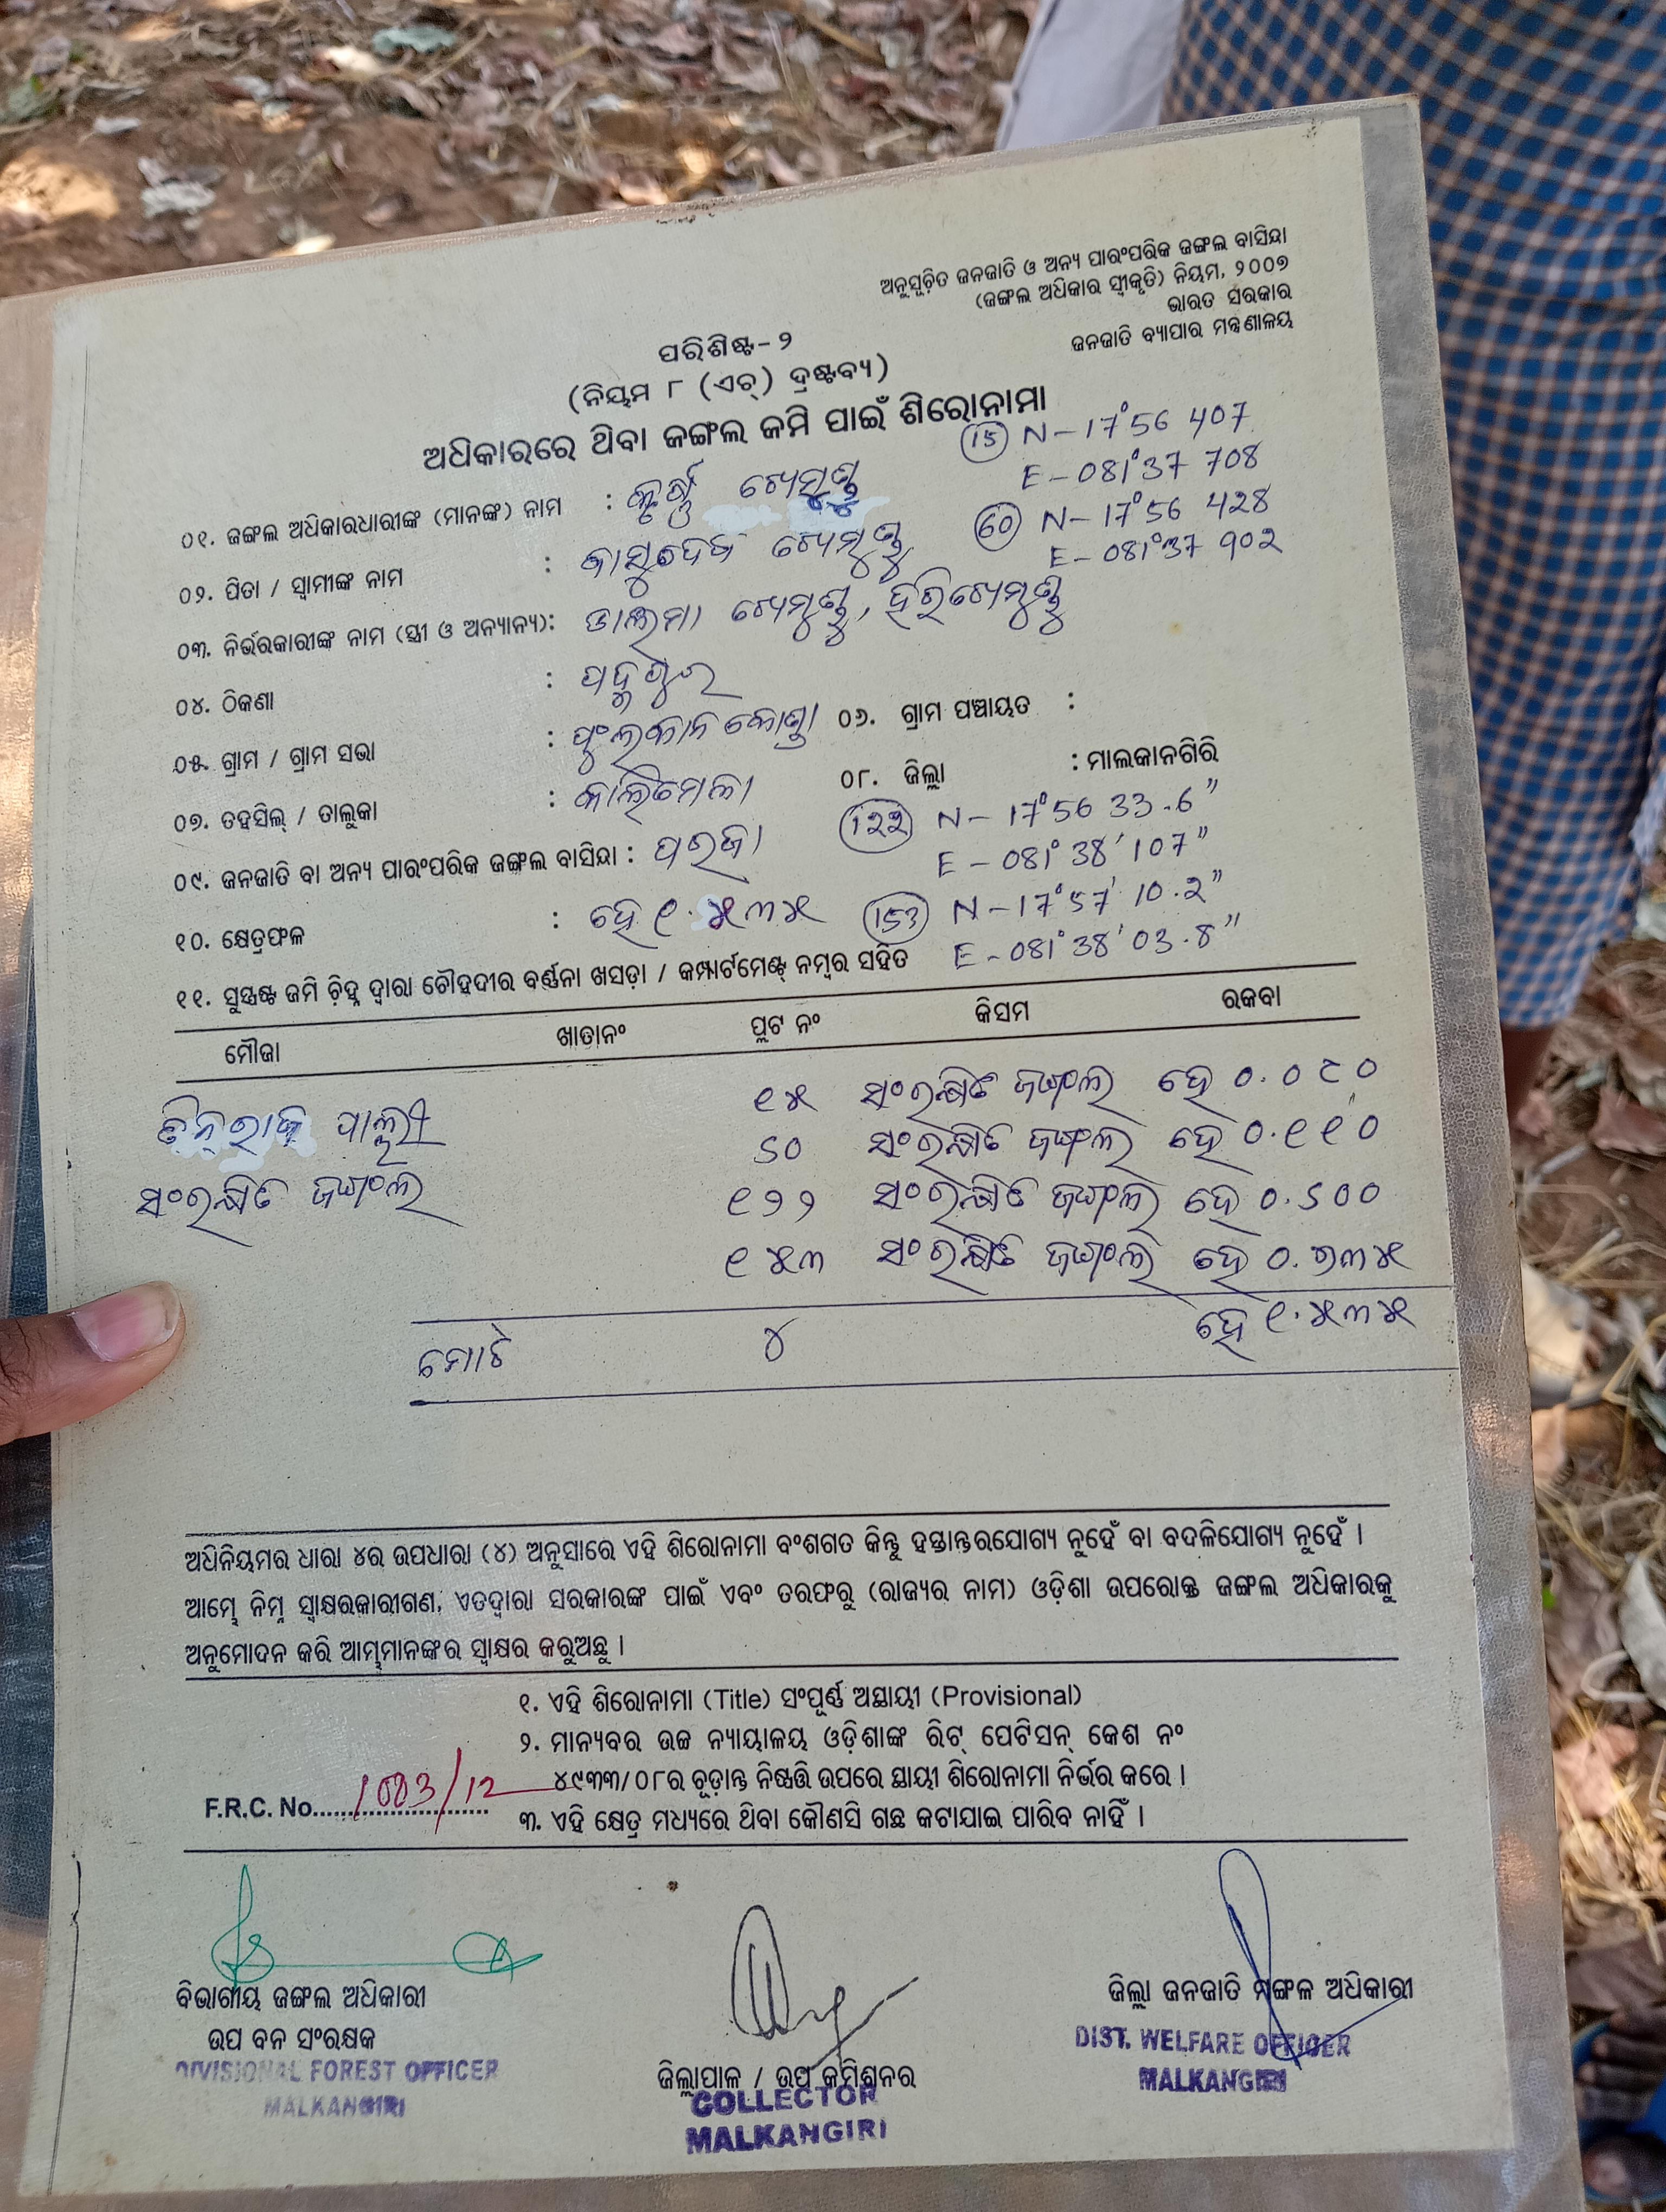 ଅନୁସୂଚିତ ଜନଜାତି ଓ ଅନ୍ୟ ପାରଂପରିକ ଜଙ୍ଗଲ ବାସିନ୍ଦା
(ଜଙ୍ଗଲ ଅଧିକାର ସ୍ୱୀକୃତି) ନିୟମ, ୨୦୦୭
ଭାରତ ସରକାର
ଜନଜାତି ବ୍ୟାପାର ମନ୍ତ୍ରଣାଳୟ
ପରିଶିଷ୍ଟ-୨
(ନିୟମ ୮ (ଏଚ୍) ଦ୍ରଷ୍ଟବ୍ୟ)
ଅଧିକାରରେ ଥିବା ଜଙ୍ଗଲ ଜମି ପାଇଁ ଶିରୋନାମା
(15) N-17°56 407
E-081°37 708
(60) N-17°56 428
E-081°37 902
୦୧. ଜଙ୍ଗଲ ଅଧିକାରଧାରୀଙ୍କ (ମାନଙ୍କ) ନାମ :
୦୨. ପିତା / ସ୍ୱାମୀଙ୍କ ନାମ :
୦୩. ନିର୍ଭରକାରୀଙ୍କ ନାମ (ସ୍ତ୍ରୀ ଓ ଅନ୍ୟାନ୍ୟ):
୦୪. ଠିକଣା :
୦୫. ଗ୍ରାମ / ଗ୍ରାମ ସଭା : ୦୬. ଗ୍ରାମ ପଞ୍ଚାୟତ :
୦୭. ତହସିଲ୍ / ତାଲୁକା : କାଲିମେଲା ୦୮. ଜିଲ୍ଲା : ମାଲକାନଗିରି
(122) N-17°56 33.6"
E-081°38'107"
୦୯. ଜନଜାତି ବା ଅନ୍ୟ ପାରଂପରିକ ଜଙ୍ଗଲ ବାସିନ୍ଦା : ପରଜା
(153) N-17°57' 10.2"
E-081°38'03.8"
୧୦. କ୍ଷେତ୍ରଫଳ : ହେ ୧.୫୩୫
୧୧. ସୁସ୍ପଷ୍ଟ ଜମି ଚିହ୍ନ ଦ୍ୱାରା ଚୌହଦୀର ବର୍ଣ୍ଣନା ଖସଡ଼ା / କମ୍ପାର୍ଟମେଣ୍ଟ୍ ନମ୍ବର ସହିତ
ମୌଜା ଖାତାନଂ ପ୍ଲଟ ନଂ କିସମ ରକବା
୧୫ ସଂରକ୍ଷିତ ଜଙ୍ଗଲ ହେ ୦.୦୯୦
ପାଲ୍ଲୀ ୬୦ ସଂରକ୍ଷିତ ଜଙ୍ଗଲ ହେ ୦.୧୧୦
ସଂରକ୍ଷିତ ଜଙ୍ଗଲ ୧୨୨ ସଂରକ୍ଷିତ ଜଙ୍ଗଲ ହେ ୦.୬୦୦
୧୫୩ ସଂରକ୍ଷିତ ଜଙ୍ଗଲ ହେ ୦.୭୩୫
ମୋଟ ୪ ହେ ୧.୫୩୫
ଅଧିନିୟମର ଧାରା ୪ର ଉପଧାରା (୪) ଅନୁସାରେ ଏହି ଶିରୋନାମା ବଂଶଗତ କିନ୍ତୁ ହସ୍ତାନ୍ତରଯୋଗ୍ୟ ନୁହେଁ ବା ବଦଳିଯୋଗ୍ୟ ନୁହେଁ ।
ଆମ୍ଭେ ନିମ୍ନ ସ୍ୱାକ୍ଷରକାରୀଗଣ, ଏତଦ୍ୱାରା ସରକାରଙ୍କ ପାଇଁ ଏବଂ ତରଫରୁ (ରାଜ୍ୟର ନାମ) ଓଡ଼ିଶା ଉପରୋକ୍ତ ଜଙ୍ଗଲ ଅଧିକାରକୁ
ଅନୁମୋଦନ କରି ଆମ୍ଭମାନଙ୍କର ସ୍ୱାକ୍ଷର କରୁଅଛୁ ।
୧. ଏହି ଶିରୋନାମା (Title) ସଂପୂର୍ଣ୍ଣ ଅସ୍ଥାୟୀ (Provisional)
୨. ମାନ୍ୟବର ଉଚ୍ଚ ନ୍ୟାୟାଳୟ ଓଡ଼ିଶାଙ୍କ ରିଟ୍ ପେଟିସନ୍ କେଶ ନଂ
୪୯୩୩/୦୮ର ଚୂଡ଼ାନ୍ତ ନିଷ୍ପତ୍ତି ଉପରେ ସ୍ଥାୟୀ ଶିରୋନାମା ନିର୍ଭର କରେ ।
F.R.C. No.
୩. ଏହି କ୍ଷେତ୍ର ମଧ୍ୟରେ ଥିବା କୌଣସି ଗଛ କଟାଯାଇ ପାରିବ ନାହିଁ ।
ବିଭାଗୀୟ ଜଙ୍ଗଲ ଅଧିକାରୀ
ଉପ ବନ ସଂରକ୍ଷକ
DIVISIONAL FOREST OFFICER
MALKANGIRI
ଜିଲ୍ଲାପାଳ / ଉପ କମିଶନର
COLLECTOR
MALKANGIRI
ଜିଲ୍ଲା ଜନଜାତି ମଙ୍ଗଳ ଅଧିକାରୀ
DIST. WELFARE OFFICER
MALKANGIRI